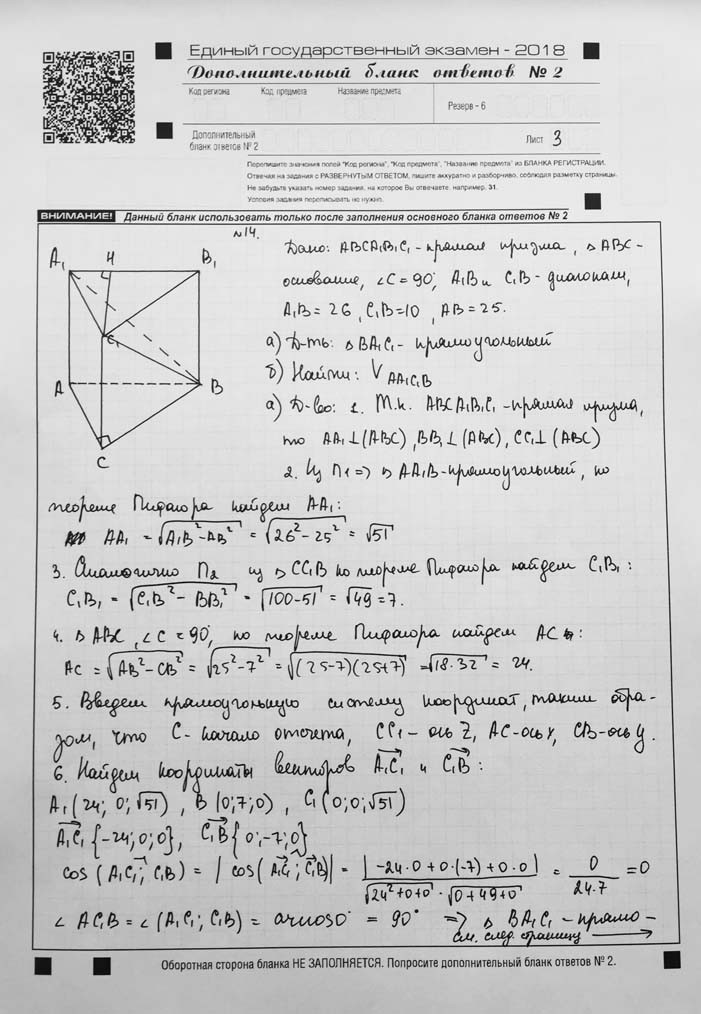 Единый государственный экзамен - 2018
Дополнительный бланк ответов № 2
Код региона Код предмета Название предмета
Резерв - 6
Дополнительный бланк ответов № 2
Лист 3
Перепишите значения полей "Код региона", "Код предмета", "Название предмета" из БЛАНКА РЕГИСТРАЦИИ.
Отвечая на задания с РАЗВЕРНУТЫМ ОТВЕТОМ, пишите аккуратно и разборчиво, соблюдая разметку страницы.
Не забудьте указать номер задания, на которое Вы отвечаете, например, 31.
Условия задания переписывать не нужно.
ВНИМАНИЕ! Данный бланк использовать только после заполнения основного бланка ответов № 2
№14.
A₁ H B₁
C₁
A B
C
Дано: ABCA₁B₁C₁ - прямая призма, △ABC -
основание, ∠C = 90°, A₁B и C₁B - диагонали,
A₁B = 26, C₁B = 10, AB = 25.
а) Д-ть: △BA₁C₁ - прямоугольный
б) Найти: V AA₁C₁B
а) Д-во: 1. Т.к. ABCA₁B₁C₁ - прямая призма,
то AA₁⊥(ABC), BB₁⊥(ABC), CC₁⊥(ABC)
2. Из п1 => △AA₁B - прямоугольный, по
теореме Пифагора найдем AA₁:
AA₁ = √(A₁B² - AB²) = √(26² - 25²) = √51
3. Аналогично п2 из △CC₁B по теореме Пифагора найдем C₁B₁:
C₁B₁ = √(C₁B² - BB₁²) = √(100-51) = √49 = 7.
4. △ABC, ∠C = 90°, по теореме Пифагора найдем AC:
AC = √(AB² - CB²) = √(25² - 7²) = √((25-7)(25+7)) = √(18·32) = 24.
5. Введем прямоугольную систему координат, таким обра-
зом, что C - начало отсчета, CC₁ - ось Z, AC - ось x, CB - ось y.
6. Найдем координаты векторов A₁C₁ и C₁B:
A₁(24; 0; √51), B(0; 7; 0), C₁(0; 0; √51)
A₁C₁{-24; 0; 0}, C₁B{0; -7; 0}
cos(A₁C₁; C₁B) = |cos(A₁C₁; C₁B)| = |-24·0 + 0·(-7) + 0·0| / (√(24²+0+0) · √(0+49+0)) = 0 / (24·7) = 0
∠AC₁B = ∠(A₁C₁; C₁B) = arccos0 = 90° => △BA₁C₁ - прямо-
см. след. страницу
Оборотная сторона бланка НЕ ЗАПОЛНЯЕТСЯ. Попросите дополнительный бланк ответов № 2.